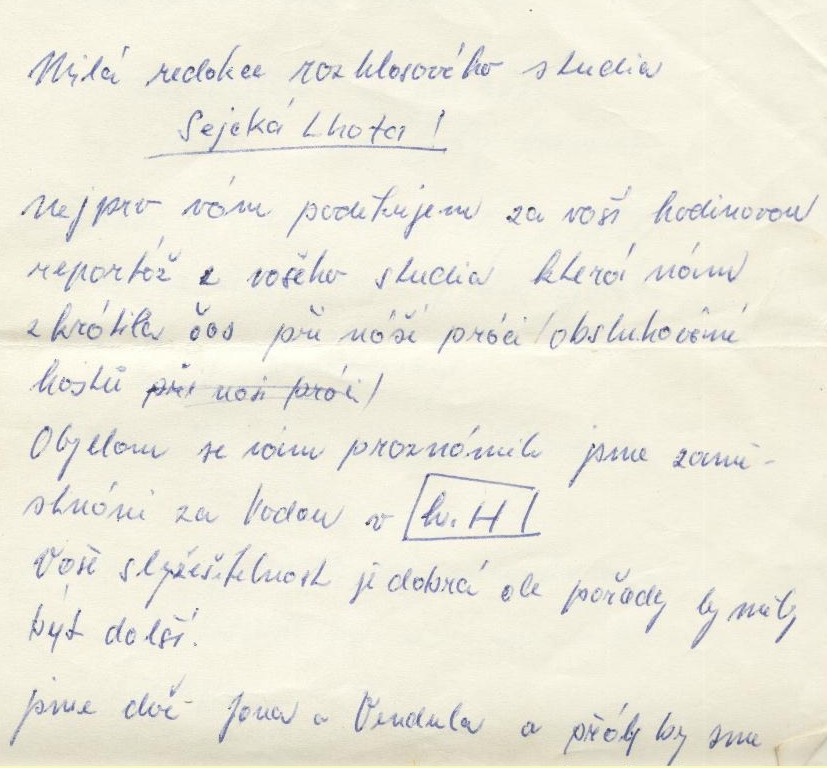 Milá redakce rozhlasového studia
Sejcká Lhota!
Nejprv vám poděkujem za vaší hodinovou
reportáž z vašeho studia která nám
zkrátila čas při náší práci (obsluhování
hostů při naší práci)
se vám jsme zamě-
stnáni za Vodou v h.H!
Vaše slyšeitelnost je dobrá ale pořady by měly
být dalši.
jsme dvě Jana a Vendula a přály by sme